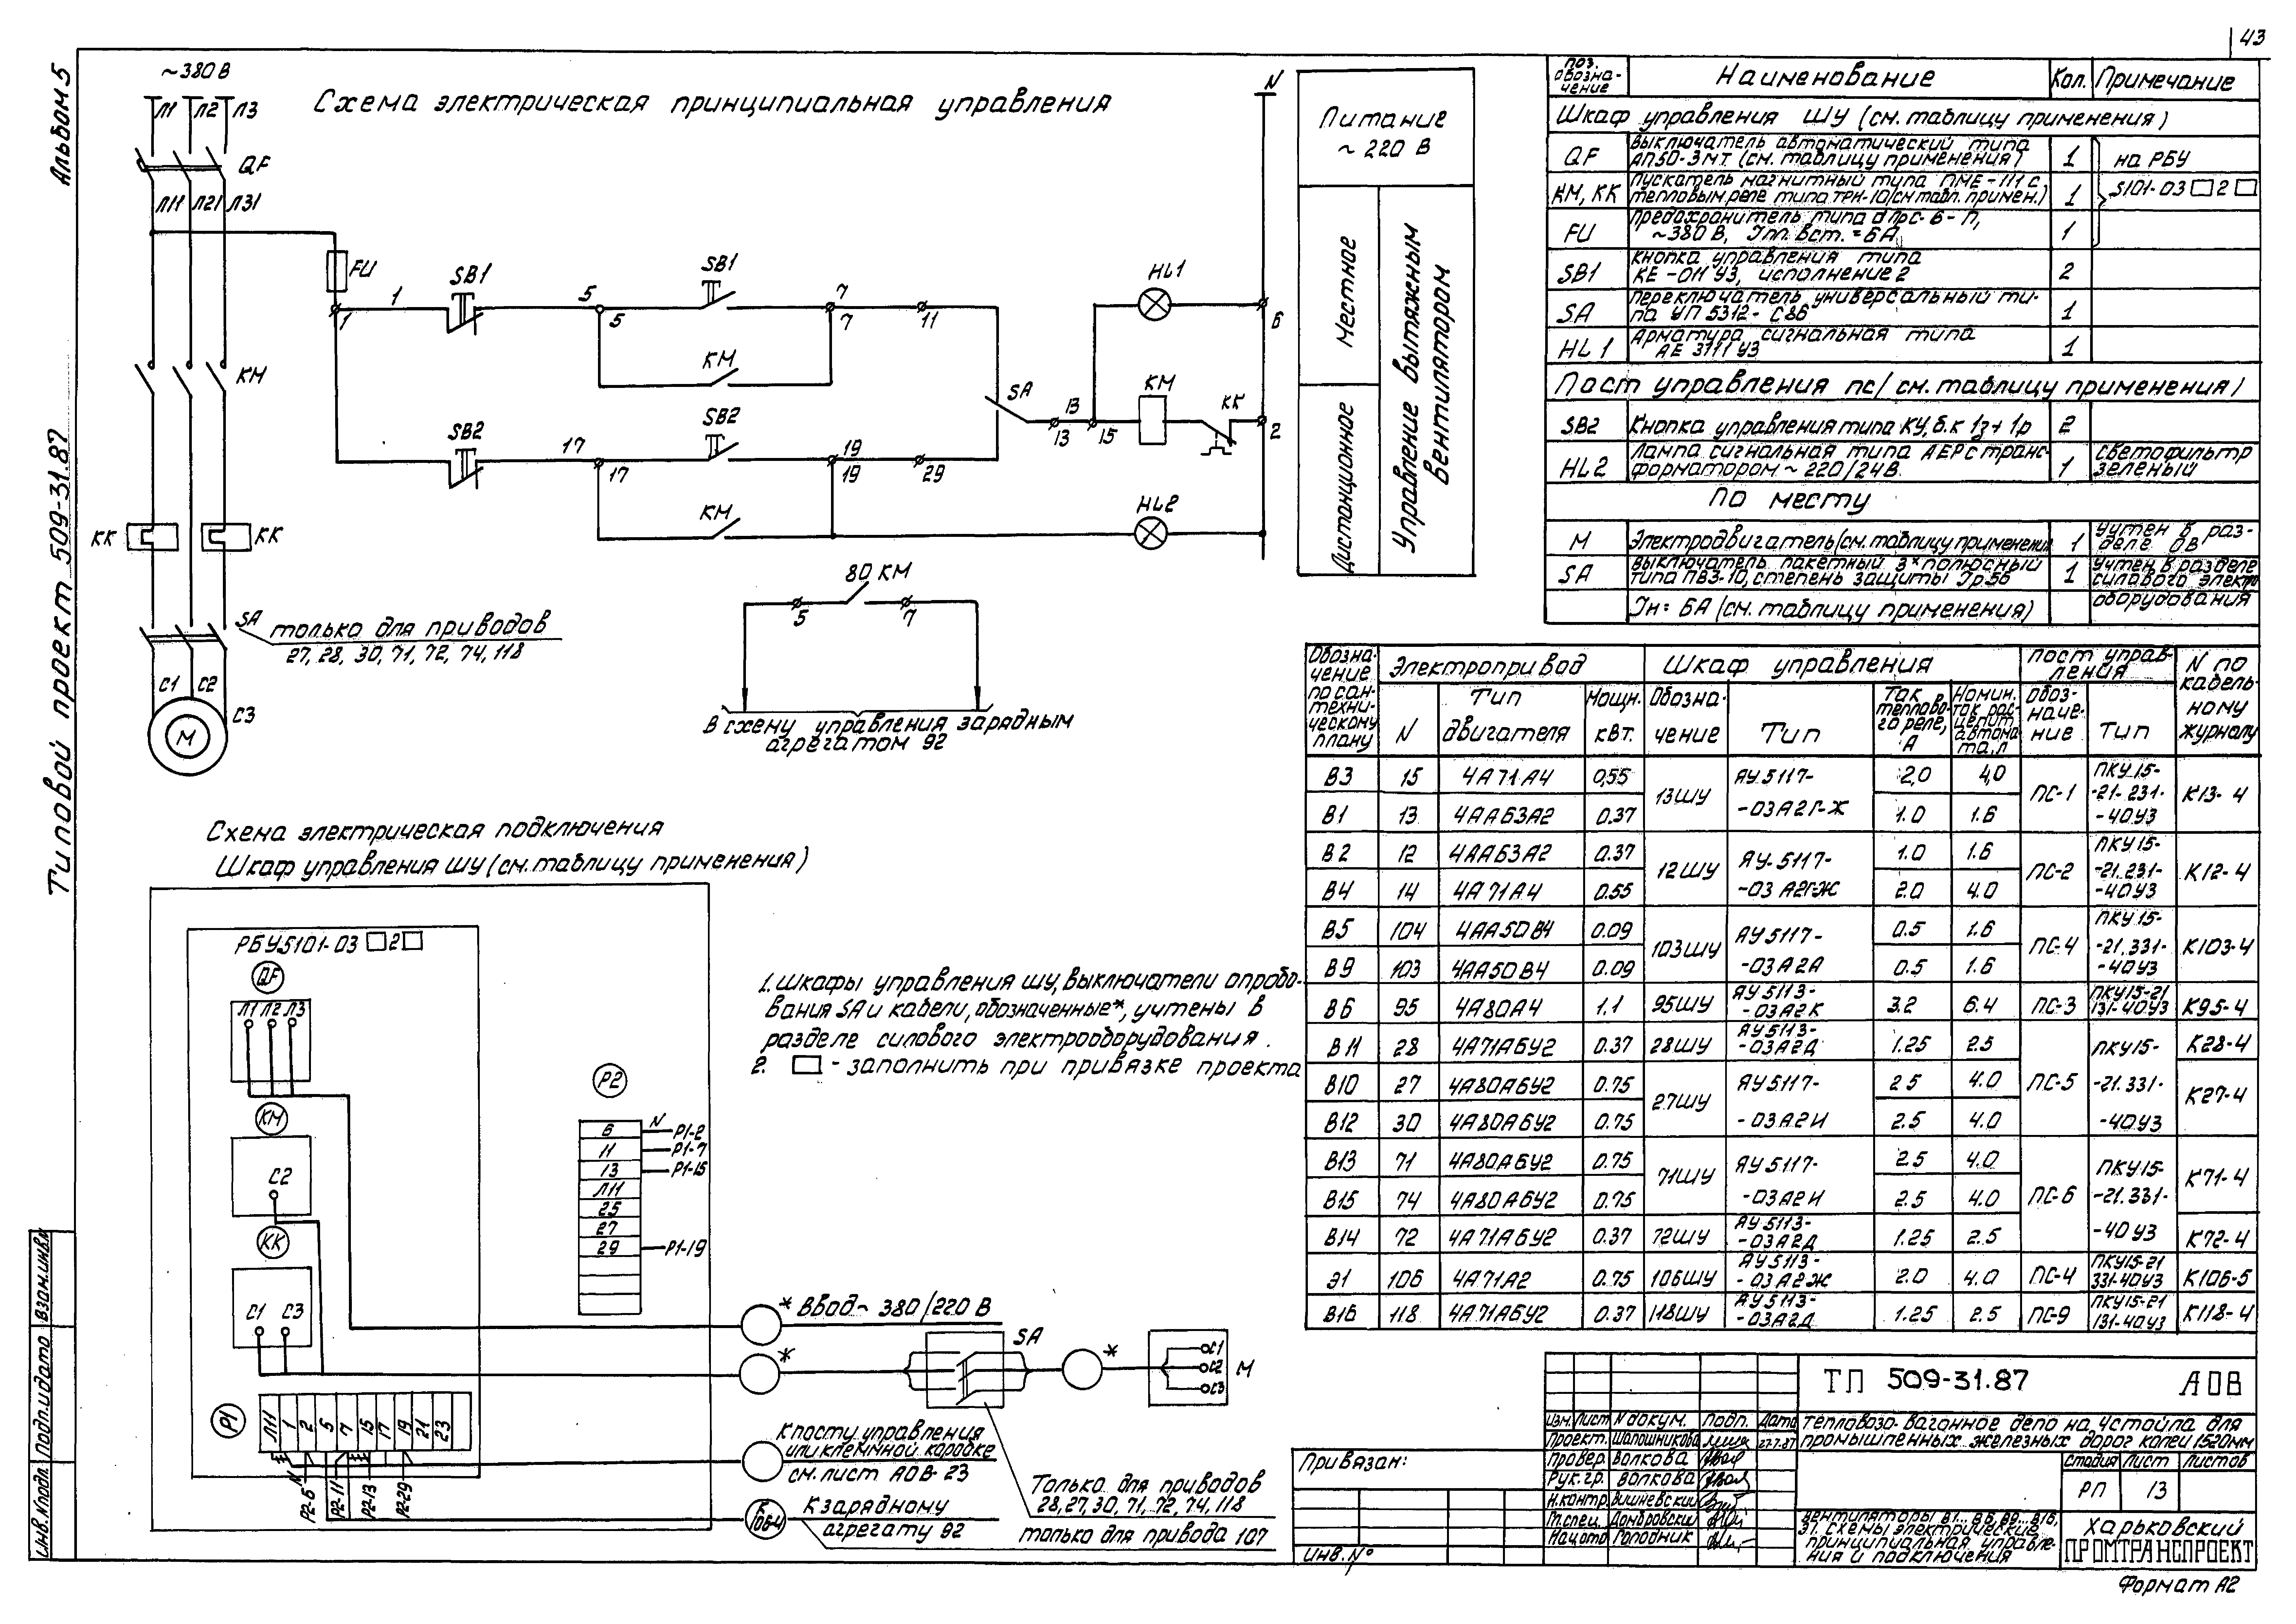 43
Альбом 5
Типовой проект 509-31.87
~380 В
Схема электрическая принципиальная управления
Л1 Л2 Л3
QF
Л11 Л21 Л31
FU
1
1
SB1
5
5
SB1
7
7
11
КМ
КМ
SA
HL1
N
6
В
13
15
КМ
КК
2
SB2
17
17
SB2
19
19
29
КМ
HL2
КК
КК
80 КМ
5
7
В схему управления зарядным
агрегатом 92
SA
только для приводов
27, 28, 30, 71, 72, 74, 118
С1 С2
С3
М
Питание
~ 220 В
Местное
Дистанционное
Управление вытяжным
вентилятором
Поз. обозна-чение Наименование Кол. Примечание
Шкаф управления ШУ (см. таблицу применения)
QF Выключатель автоматический типа АП50-3МТ (см. таблицу применения) 1 на РБУ
КМ, КК Пускатель магнитный типа ПМЕ-111 с тепловым реле типа ТРН-10 (см табл. примен.) 1 5101-03□2□
FU Предохранитель типа ПРС-6-П, ~380 В, Iпл. вст. = 6А 1
SB1 Кнопка управления типа КЕ-011 У3, исполнение 2 2
SA Переключатель универсальный ти-па УП 5312-С86 1
HL1 Арматура сигнальная типа АЕ 3111 У3 1
Пост управления ПС (см. таблицу применения)
SB2 Кнопка управления типа КУ, б.к 1з+1р 2
HL2 Лампа сигнальная типа АЕР с транс-форматором ~ 220/24В. 1 светофильтр зеленый
По месту
М Электродвигатель (см. таблицу применения 1 Учтен в раз-деле ОВ
SA Выключатель пакетный 3х полюсный типа ПВ3-10, степень защиты Iр56 1 Учтен в разделе силового электро
Iн = 6А (см. таблицу применения) оборудования
Обозна-чение по сан-техни-ческому плану Электропривод Шкаф управления Пост управ-ления N по кабель-ному журналу
N Тип двигателя Мощн. квт. Обозна-чение Тип Ток теплово-го реле, А Номин. ток рас-цепит. автома-та, А Обоз-наче-ние Тип
В3 15 4А71А4 0,55 13ШУ ЯУ5117-03А2Г-Ж 2,0 4,0 ПС-1 ПКУ15-21-231-40У3 К13-4
В1 13 4АА63А2 0.37 1.0 1.6
В2 12 4АА63А2 0.37 12ШУ ЯУ-5117-03А2Г-Ж 1.0 1.6 ПС-2 ПКУ15-21.231-40У3 К12-4
В4 14 4А71А4 0.55 2.0 4.0
В5 104 4АА50В4 0.09 103ШУ ЯУ5117-03А2А 0.5 1.6 ПС-4 ПКУ15-21.331-40У3 К103-4
В9 103 4АА50В4 0.09 0.5 1.6
В6 95 4А80А4 1.1 95ШУ ЯУ5113-03А2К 3.2 6.4 ПС-3 ПКУ15-21 131-40У3 К95-4
В11 28 4А71А6У2 0.37 28ШУ ЯУ5113-03А2Д 1.25 2.5 ПС-5 ПКУ15-21.331-40У3 К28-4
В10 27 4А80А6У2 0.75 27ШУ ЯУ5117-03А2И 2.5 4.0 К27-4
В12 30 4А80А6У2 0.75 2.5 4.0
В13 71 4А80А6У2 0.75 71ШУ ЯУ5117-03А2И 2.5 4.0 ПС-6 ПКУ15-21.331-40У3 К71-4
В15 74 4А80А6У2 0.75 2.5 4.0
В14 72 4А71А6У2 0.37 72ШУ ЯУ5113-03А2Д 1.25 2.5 К72-4
Э1 106 4А71А2 0.75 106ШУ ЯУ5113-03А2Ж 2.0 4.0 ПС-4 ПКУ15-21 331-40У3 К106-5
В16 118 4А71А6У2 0.37 118ШУ ЯУ5113-03А2Д 1.25 2.5 ПС-9 ПКУ15-21 131-40У3 К118-4
Схема электрическая подключения
Шкаф управления ШУ (см. таблицу применения)
РБУ5101-03□2□
QF
Л1 Л2 Л3
КМ
С2
КК
С1 С3
Р1
Л11 1 2 5 7 15 17 19 21 23
N
Р2-6 Р2-11 Р2-13 Р2-29
Р2
6 N Р1-2
11 Р1-7
13 Р1-15
Л11
25
27
29 Р1-19
1. Шкафы управления ШУ, выключатели опробо-
вания SA и кабели, обозначенные*, учтены в
разделе силового электрооборудования.
2. □ - заполнить при привязке проекта
* Ввод ~ 380/220 В
*
SA
*
С1
С2
С3
М
К посту управления
или клеммной коробке
см. лист АОВ-23
К зарядному
агрегату 92
Только для приводов
28, 27, 30, 71, 72, 74, 118
только для привода 107
Привязан:
Инв. №
ТП 509-31.87 АОВ
Изм. Лист N докум. Подп. Дата
Проект. Шапошникова 27.7.87
Провер. Волкова
Рук. гр. Волкова
Н.контр. Вишневский
Гл.спец. Домбровский
Нач.отд Голодник
Тепловозо-вагонное депо на 4 стойла для
промышленных железных дорог колеи 1520мм
Стадия Лист Листов
РП 13
Вентиляторы В1...В6, В9...В16,
Э1. Схемы электрические
принципиальная управле-
ния и подключения
Харьковский
ПРОМТРАНСПРОЕКТ
Формат А2
Инв. N подл. Подп. и дата Взам. инв. N